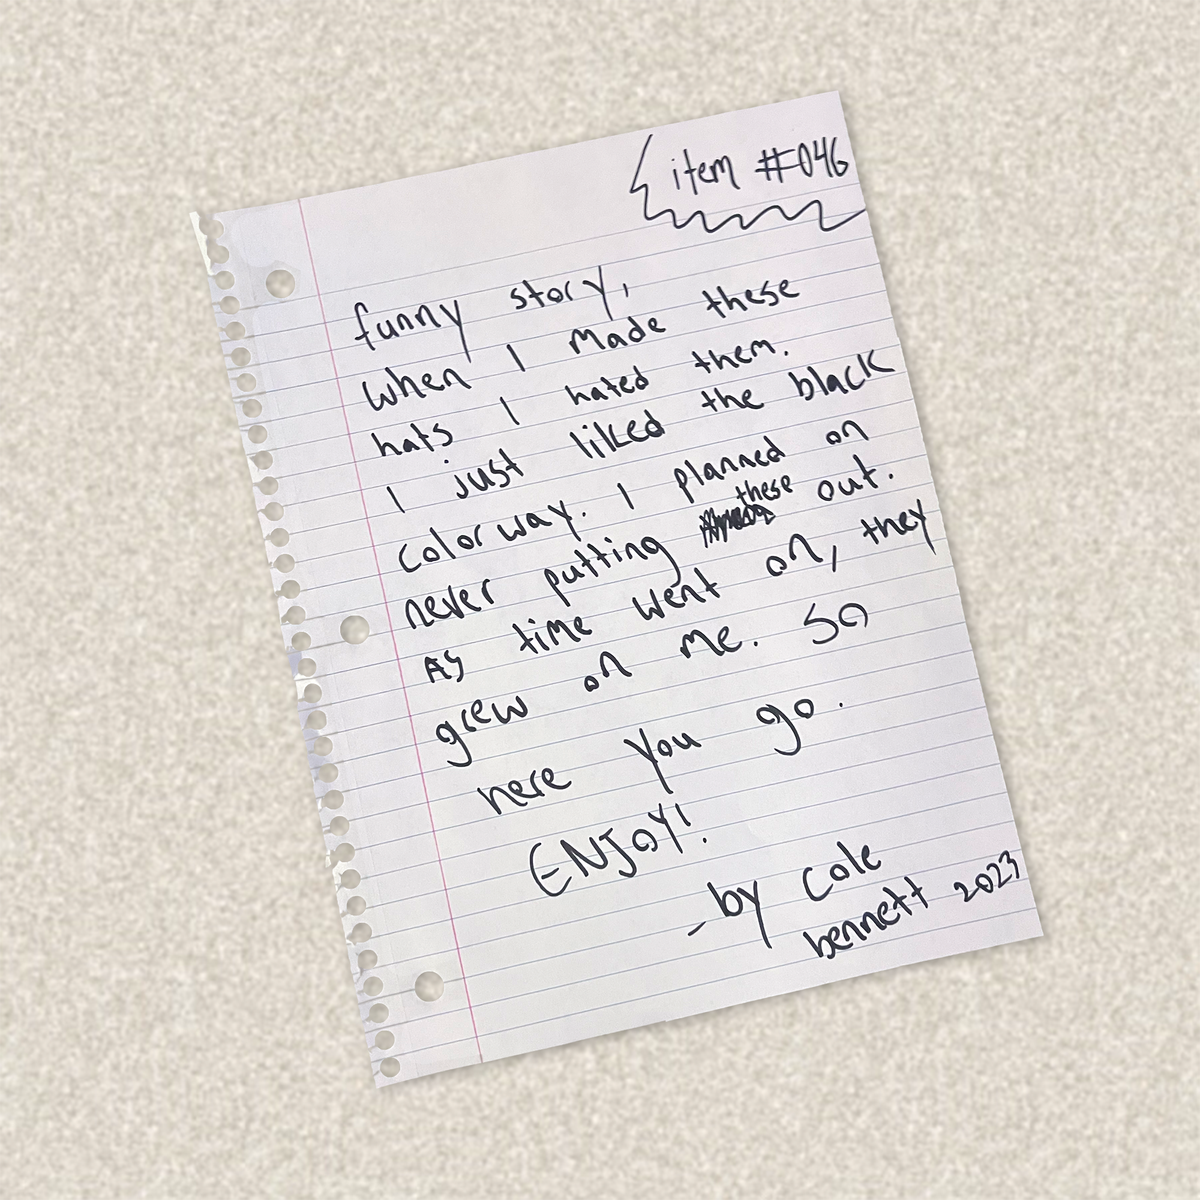 item #046
funny story,
when I made these
hats I hated them.
I just liked the black
colorway. I planned on
never putting these out.
As time went on, they
grew on me. So
here you go.
ENJOY!
- by Cole
bennett 2023